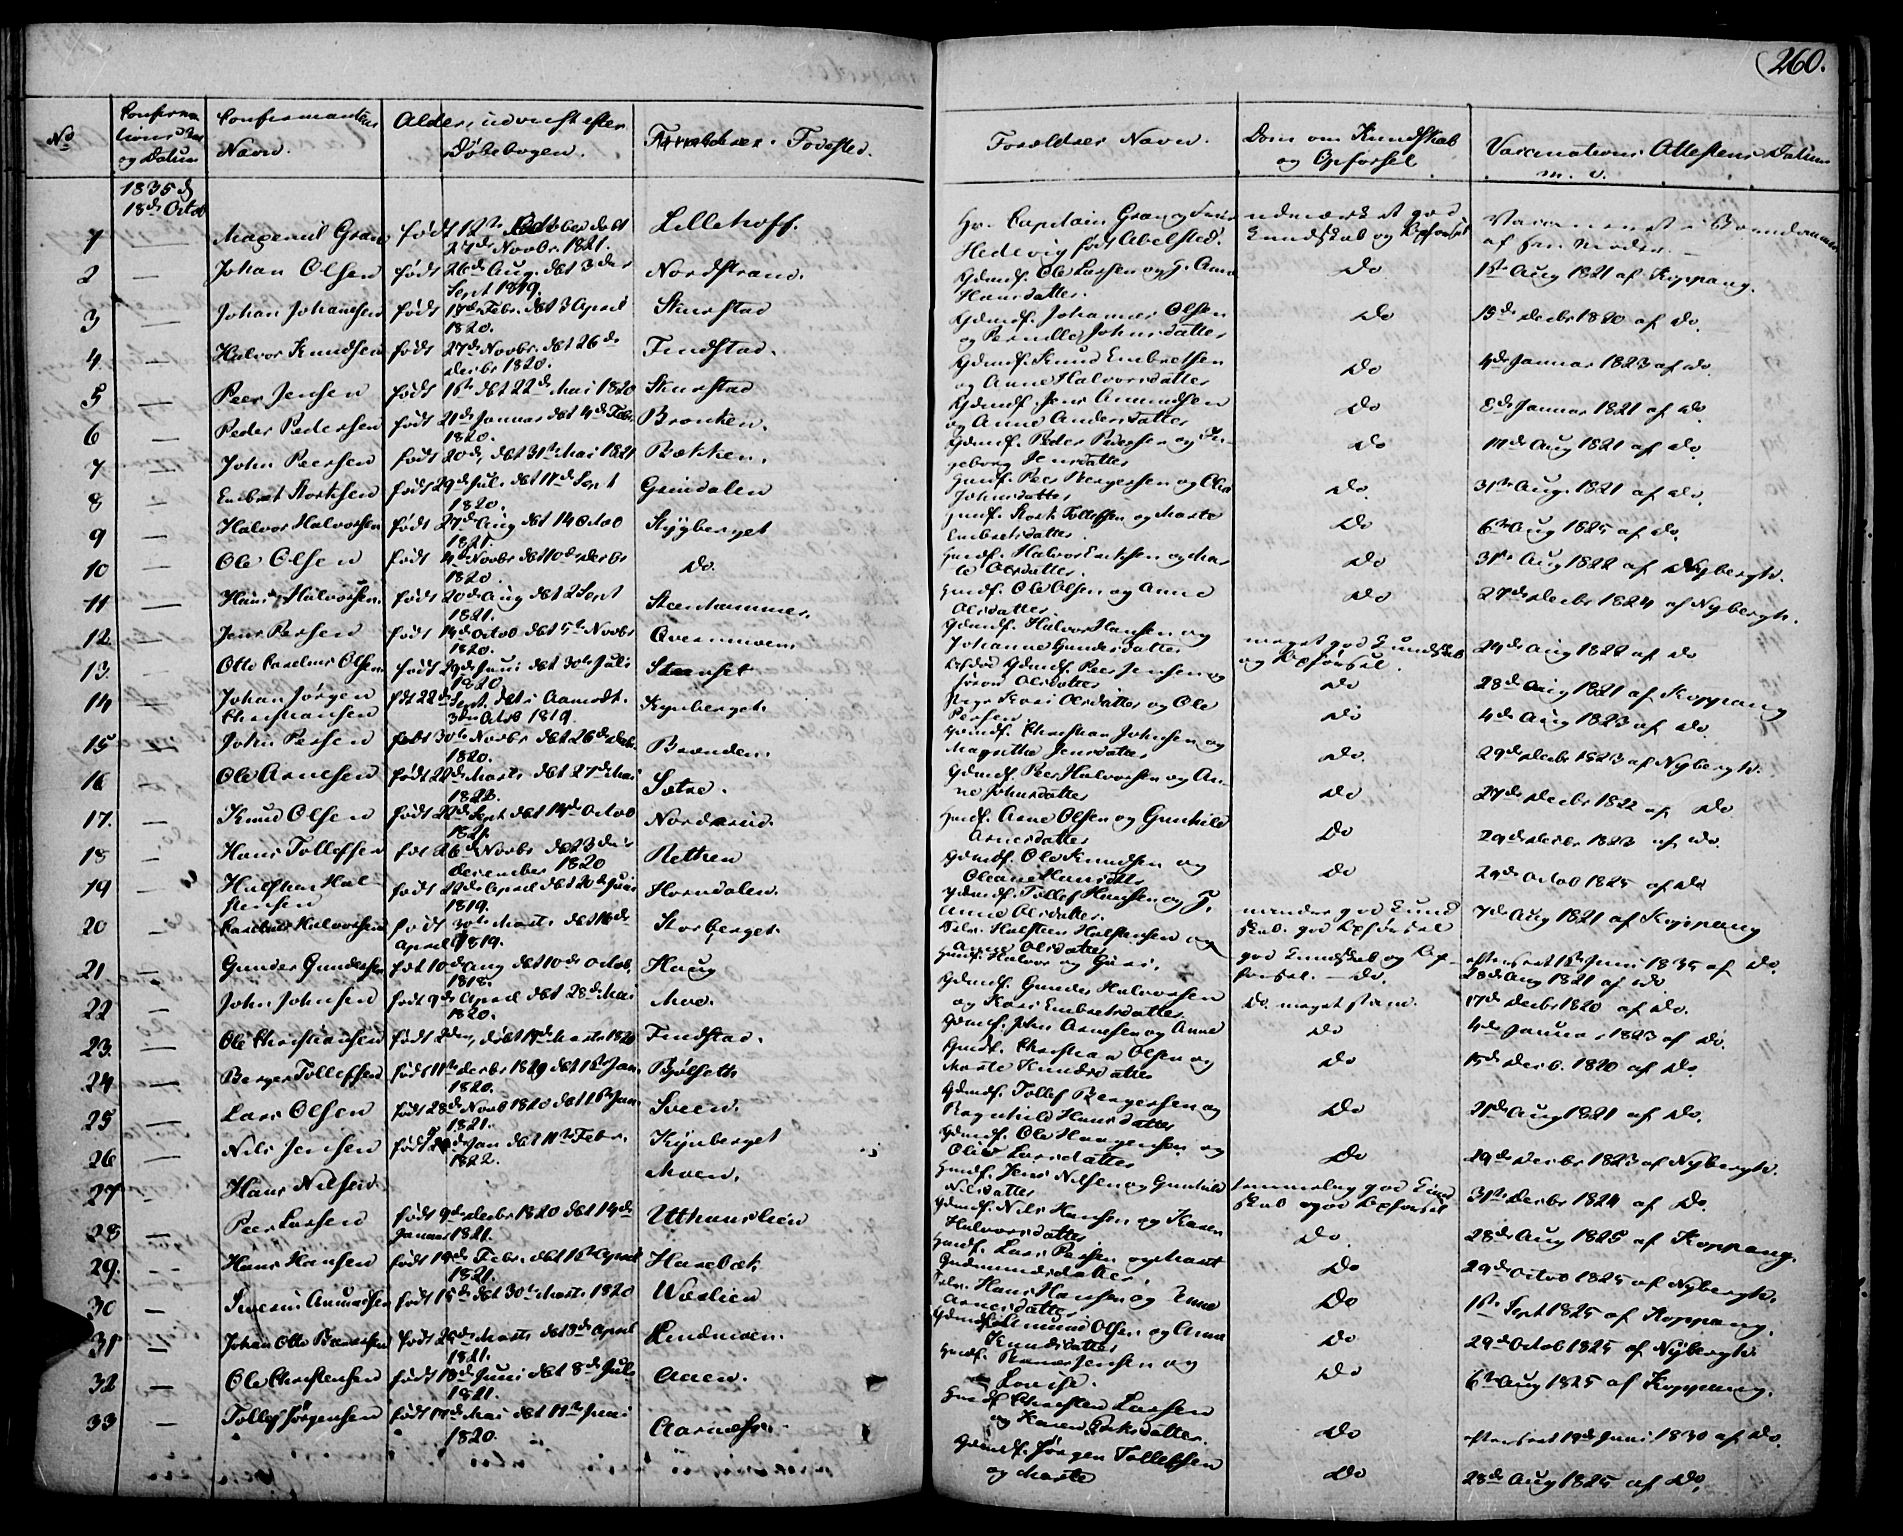 260.
No
Confirma
tions Aar
og Datum
Confirmantens
Navn.
Alder, udviist efter
Døbebogen.
Fødested.
Forældres Navn.
Dom om Kundskab
og Opførsel
Vaccinations Attestens Datum
m. v.
1835 d
18de Octob
1 Magenus Gran født 12te Octobr døbt
27de Novbr. 1821. Lillehoff.
Hr. Capitain Gran og Frue
Hedevig født Abelsted.
udmærket god
Kundskab og Opførsel
2 — Johan Olsen født 26de Aug. døbt 3die
Sept 1819. Nordstrand.
Gdmd. Ole Larsen og H. Anne
Hansdatter.
Do
1ste Aug 1821 af Koppang.
3 — Johan Johannsen født 17de Febr. døbt 3 April
1820. Skurstad
Gdmd. Johannes Olsen
og Pernelle Johnsdatter
Do
15de Decbr 1820 af Do.
4 — Halvor Knudsen født 27de Novbr. døbt 26de
Decbr 1820. Finstad.
Gdmd. Knud Embretsen
og Anne Halvorsdatter
Do
4de Januar 1823 af Do.
5 — Peer Jensen født 16te døbt 22de Mai 1820 Skurstad
Gdmd. Jens Amundsen
og Anne Andersdatter
Do
8de Januar 1821 af Do
6 — Peder Pedersen født 21de Januar døbt 4de Febr
1820. Bronken.
Gdmd. Peder Pedersen og In-
geborg Jensdatter
Do
17de Aug 1821 af Do.
7 — John Peersen født 20de, døbt 31te Mai 1821 Bækken.
Husmd. Peer Bergersen og Olia
Johnsdatter
Do.
31te Aug. 1821 af Do.
8 — Embret Storksen født 29de Juli døbt 17de Sept
1820. Grindalen
Husmd. Stork Tollefsen og Marte
Embretsdatter.
Do
6te Aug 1825 af Do.
9 — Halvor Halvorsen født 27de Aug døbt 14 Octob
1821. Rygberget
Husmd. Halvor Eriksen og Mar-
te Olsdatter.
Do
31te Aug 1822 af Nybergh.
10 — Ole Olsen født 4de Novbr døbt 10de Decbr
1820. Do.
Husmd. Ole Olsen og Anne
Olsdatter.
Do
27de Decbr 1824 af Nybergh.
11 — Hans Halvorsen. født 20de Aug døbt 2 Sept
1821. Steenhammer.
Gdmd. Halvor Hansen og
Johanne Gundersdatter
meget god Kundskab
og Opførsel.
24de Aug 1822 af Do
12 — Jens Persen født 14de Octob døbt 5te Novbr
1820.
Gdmd. Peer Jensen og
Olsdatter
Do
28de Aug 1821 af Koppang
13. Otto Carelius Olsen født 29de Juni døbt 30te Juli
1820
Pige Kari Olsdatter og Ole
Persen
Do
4de Aug 1823 af Do.
14 — Johan Jørgen
Christiansen fdt 22de Sept. døbt i Aamodt.
3die Octob 1819. Kynberget.
Gdmd. Christian Johnsen og
Magrethe Jensdatter
Do.
29de Decbr 1823 af Nybergh.
15 — John Persen født 30te Novbr døbt 26de Decbr.
1820. Brænden.
Gdmd. Peer Halvorsen og An-
ne Johnsdatter
Do
27de Decbr 1822 af Do
16 Ole Arnesen født 22de Marts døbt 27de Mai
1823. Sætre.
Husmd. Arne Olsen og Gunhild
Arnesdatter
Do
29de Decbr 1823 af Do.
17. — Knud Olsen født 22de Sept døbt 14de Octob
1821. Nordsrud.
Gdmd. Ole Knudsen og
Oleane Hansdatter
Do
29de Octob 1825 af Do
18 — Hans Tollefsen født 26de Novbr døbt 23die
December 1820 Retten
Gdmd. Tollef Hansen og H.
Anne Olsdatter.
mindre god Kund
skab. god Opførsel
7de Aug 1821 af Koppang
19 — Halsten Hal-
stensen født 22de April døbt 20de Juni
1819. Horndalen.
Halsten Halstensen og
Anne Olsdatter
god Kundskab og Op-
førsel. — Do.
12te Juni 1835 af Do.
20 — Carelius Halvorsen født 30te Marts døbt 16de
April 1819. Storberget.
Husmd. Halvor og Guri.
28de Aug 1821 af Do
21 — Gunder Gundersen født 10de Aug døbt 10de Octob.
1818. Haug
Gdmd. Gunder Halvorsen
og Kari Embretsdatter
Do. meget
17de Decbr 1820 af Do.
22 — John Johnsen født 9de April døbt 28de Mai
1820. Moe.
Gdmd. John Arnesen og Anne
Do
4de Januar 1823 af Do.
23. — Ole Christiansen født 2den, døbt 19de Marts 1820 Finstad.
Husmd. Christian Olsen og
Marte Knudsdatter
Do
15de Decb. 1820 af Do.
24 — Berger Tollefsen født 11te Decbr 1819 døbt 16te Jan
1820. Bjølseth
Gdmd. Tollef Bergersen og
Ragnhild Hansdatter
Do
21de Aug 1821 af Do.
25 — Lars Olsen født 28de Novb 1820 døbt 16te Jan.
1821. Sveen.
Gdmd. Ole Haagensen og
Olea Larsdatter
Do
29de Decbr 1823 af Nybergh.
26 — Nils Jensen født 20de Jan døbt 11te Febr.
1822. Kynberget
Husmd. Jens Nilsen og Gunhild
Nilsdatter
temmelig god Kund
skab og god Opførsel
31te Decbr 1824 af Do
27 — Hans Nilsen. Moen.
Gdmd. Nils Hansen og Karen
Halvorsdatter
Do.
28de Aug 1825 af Koppang.
28 — Peer Larsen født 9de Decbr 1820 døbt 14de
Januar 1821. Uthuuslien
Husmd. Lars Persen og Marit
Gudmundsdatter.
Do
29de Octob 1825 af Nybergh.
29. — Hans Hansen født 19de Febr. døbt 15te April
1821. Harebæk
Hans Hansen og Anne
Arnesdatter
Do
1ste Sept 1825 af Koppang.
30 — Siverin Amundsen født 15te døbt 30te Marts 1820 Wæslien
Gdmd. Amund Olsen og Anne
Knudsdatter
Do
29de Octob 1825 af Nybergh.
31 Johan Otto født 24de Marts døbt 8de April
1821. Lindmoen.
Husmd. Jensen og
Lovise.
Do
6te Aug 1825 af Koppang.
32 — Ole Christensen født 18de Juni døbt 8de Juli
1821. Aaen.
Husmd Christen Larsen
og Karen
Do
19de Juni 1830 af Do.
33 — Tollef Jørgensen født 17de Mai døbt 11te Juni
1820.
Gdmd. Jørgen Tollefsen
og Marte
Do
28de Aug 1825 af Do.